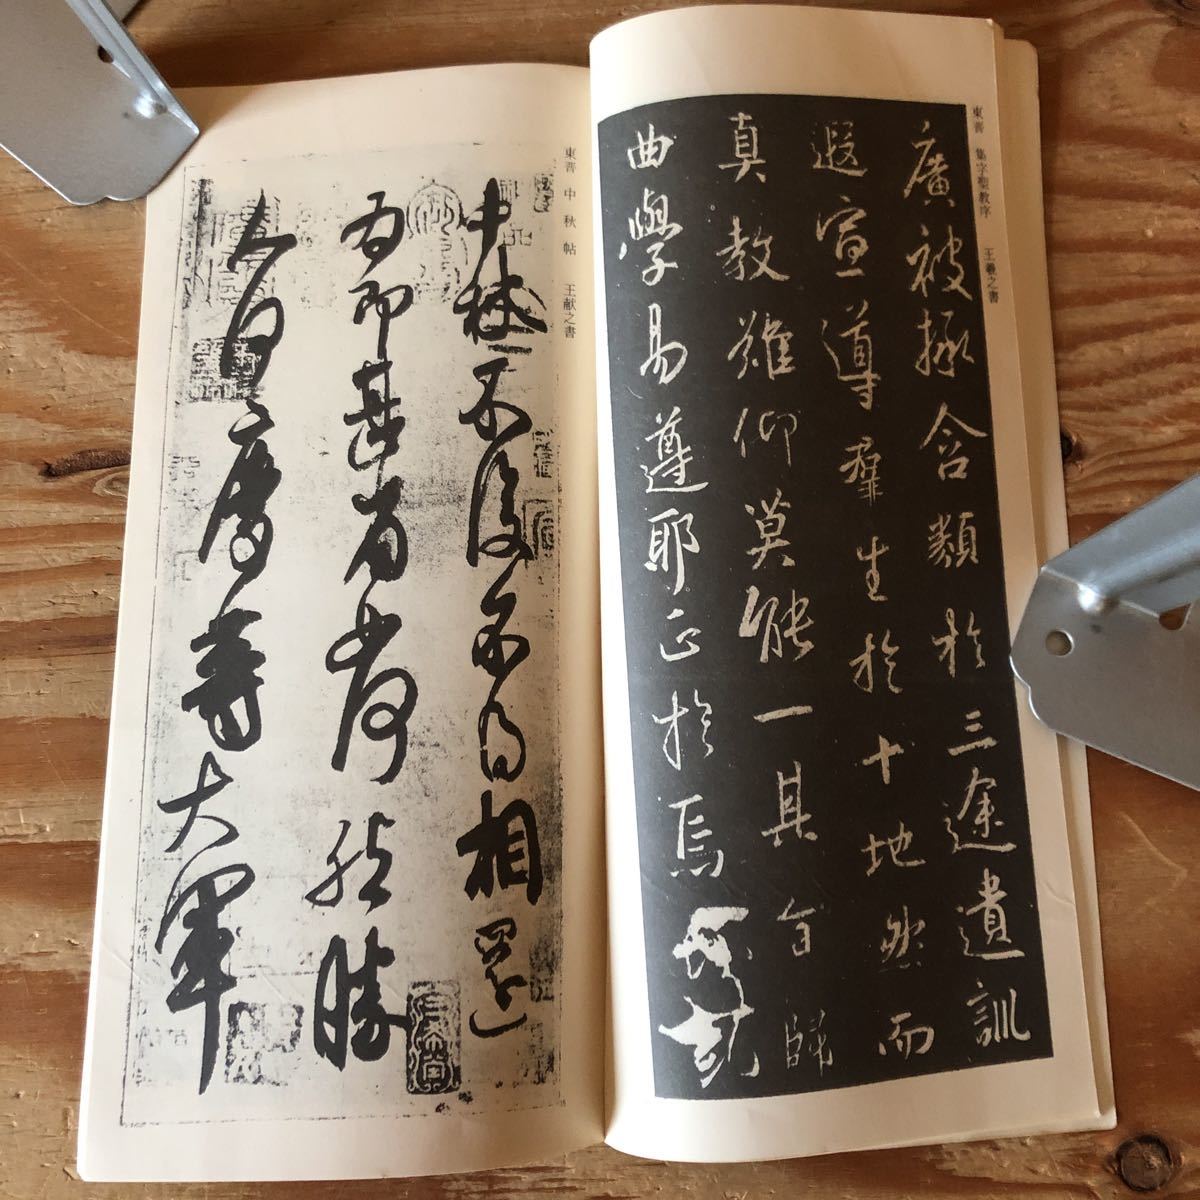 東晋 集字聖教序 王羲之書
廣被拯含類於三途遺訓
遐宣導羣生於十地然而
真教難仰莫能一其旨歸
曲學易遵耶正於焉
東晋 中秋帖 王献之書
中秋不復不得相還
為即甚省如何然勝
人何慶等大軍